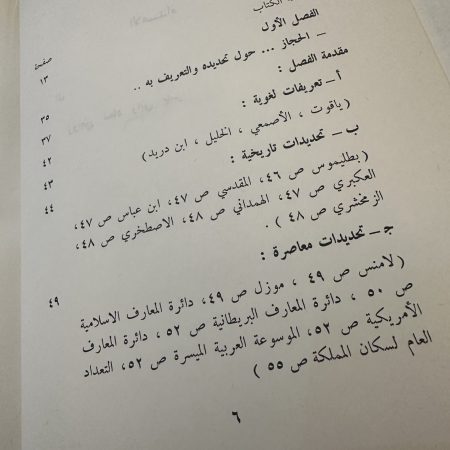 الكتاب
الفصل الأول
صفحة
– الحجاز ... حول تحديده والتعريف به .. ١٣
مقدمة الفصل : ٣٥
أ – تعريفات لغوية : ٣٧
(ياقوت ، الأصمعي ، الخليل ، ابن دريد) ٤٢
ب – تحديدات تاريخية : ٤٣
(بطليموس ص ٤٦، المقدسي ص ٤٧، ابن عباس ص ٤٧، ٤٤
العكبري ص ٤٧، الهمداني ص ٤٨، الاصطخري ص ٤٨،
الزمخشري ص ٤٨) .
جـ – تحديدات معاصرة : ٤٩
(لامنس ص ٤٩ ، موزل ص ٤٩، دائرة المعارف الاسلامية
ص ٥٠ ، دائرة المعارف البريطانية ص ٥٢، دائرة المعارف
الأمريكية ص ٥٢، الموسوعة العربية الميسرة ص ٥٢، التعداد
العام لسكان المملكة ص ٥٥ )
٦